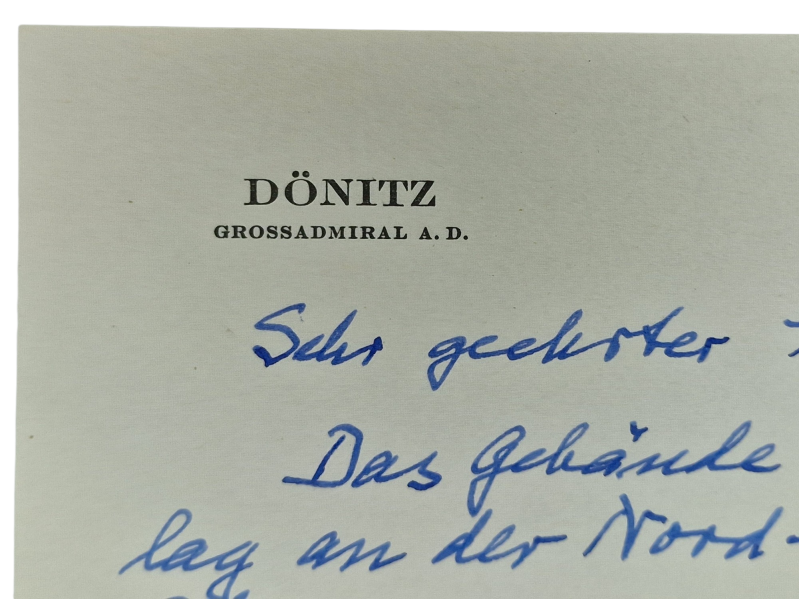 DÖNITZ
GROSSADMIRAL A. D.
Sehr geehrter
Das Gebäude
lag an der Nord-